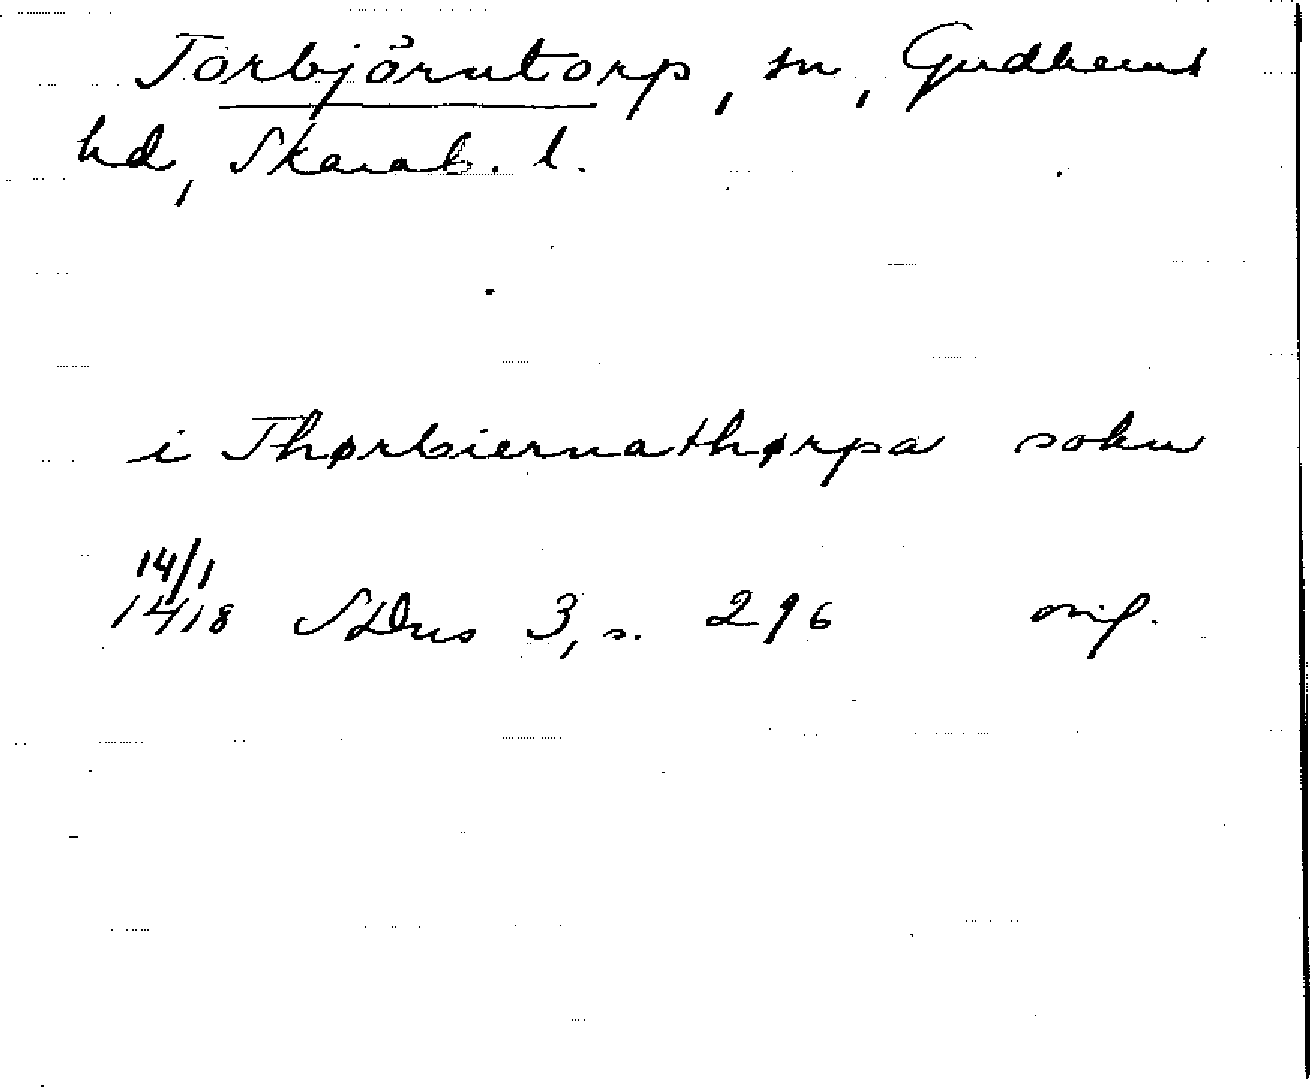 Torbjörntorp, sn, Gudhems
hd, Skarab. l.
i Thørbiernathørpa sokn
14/1
1418 SDns 3, s. 296 orig.